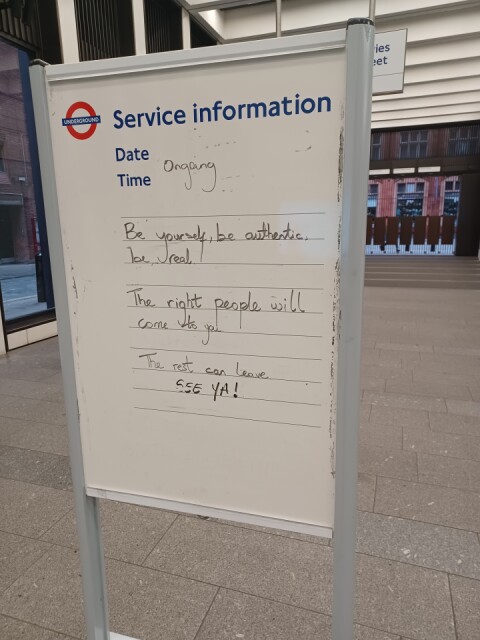 ies
eet
UNDERGROUND
Service information
Date
Time
Ongoing
Be yourself, be authentic,
be real
The right people will
come to you
The rest can leave
SEE YA!